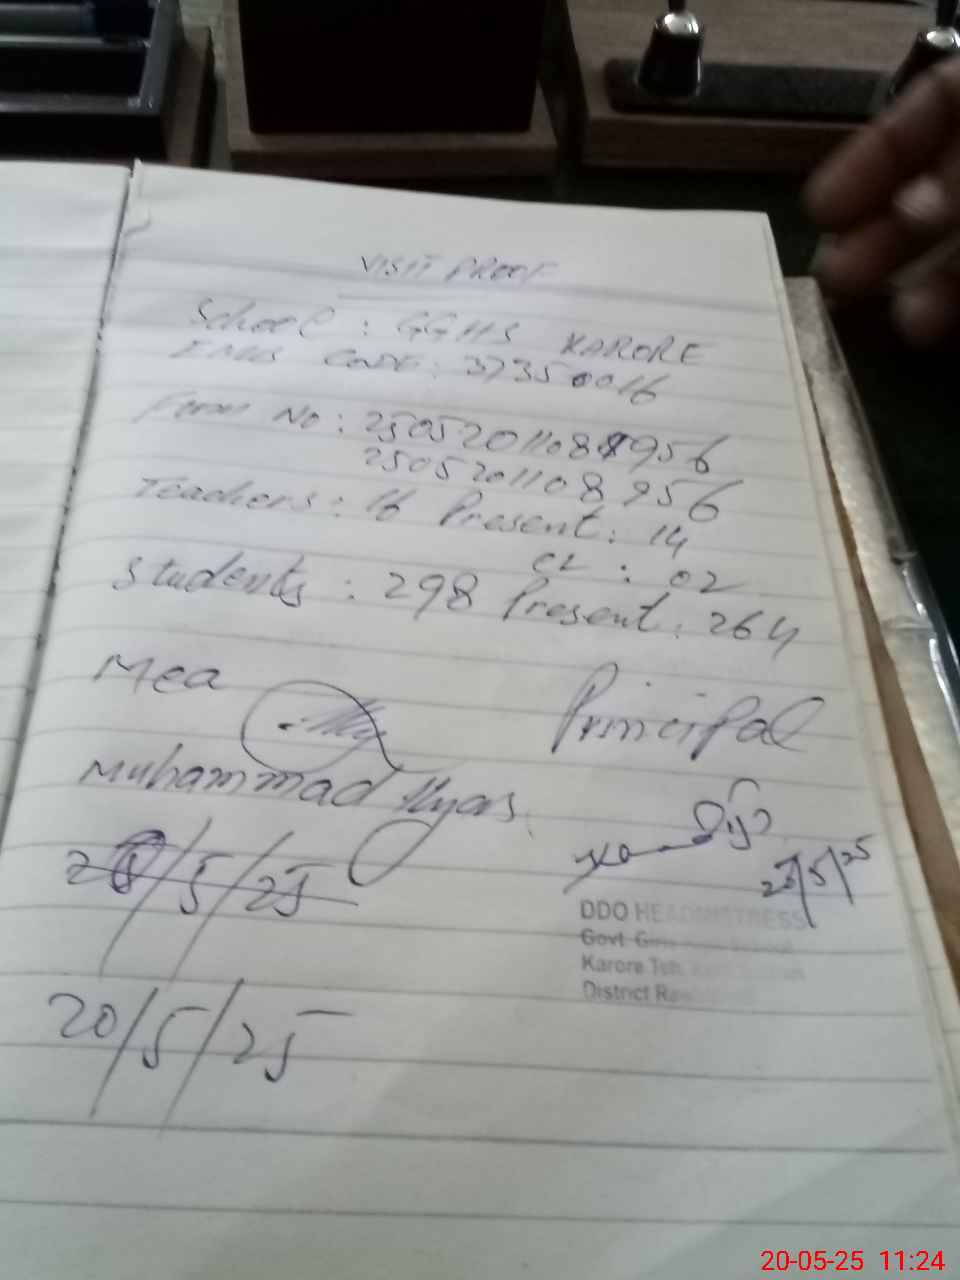 VISIT PROOF
School : GGHS KARORE
EMIS CODE : 37350016
Form No : 25052011088956
2505201108956
Teachers : 16 Present : 14
CL : 02
Students : 298 Present : 264
Mea
Principal
Muhammad Ilyas
20/5/25
DDO HEADMISTRESS
Govt. Girls
Karore Teh.
District
20/5/25
20-05-25 11:24